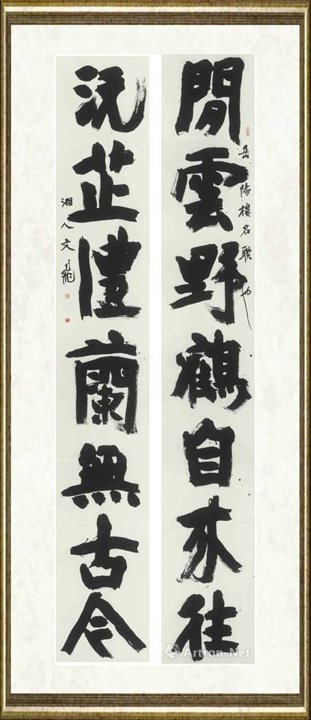 閒雲野鶴自來往
岳陽樓名聯也
沅芷澧蘭無古今
湘人文龍
Artron.Net